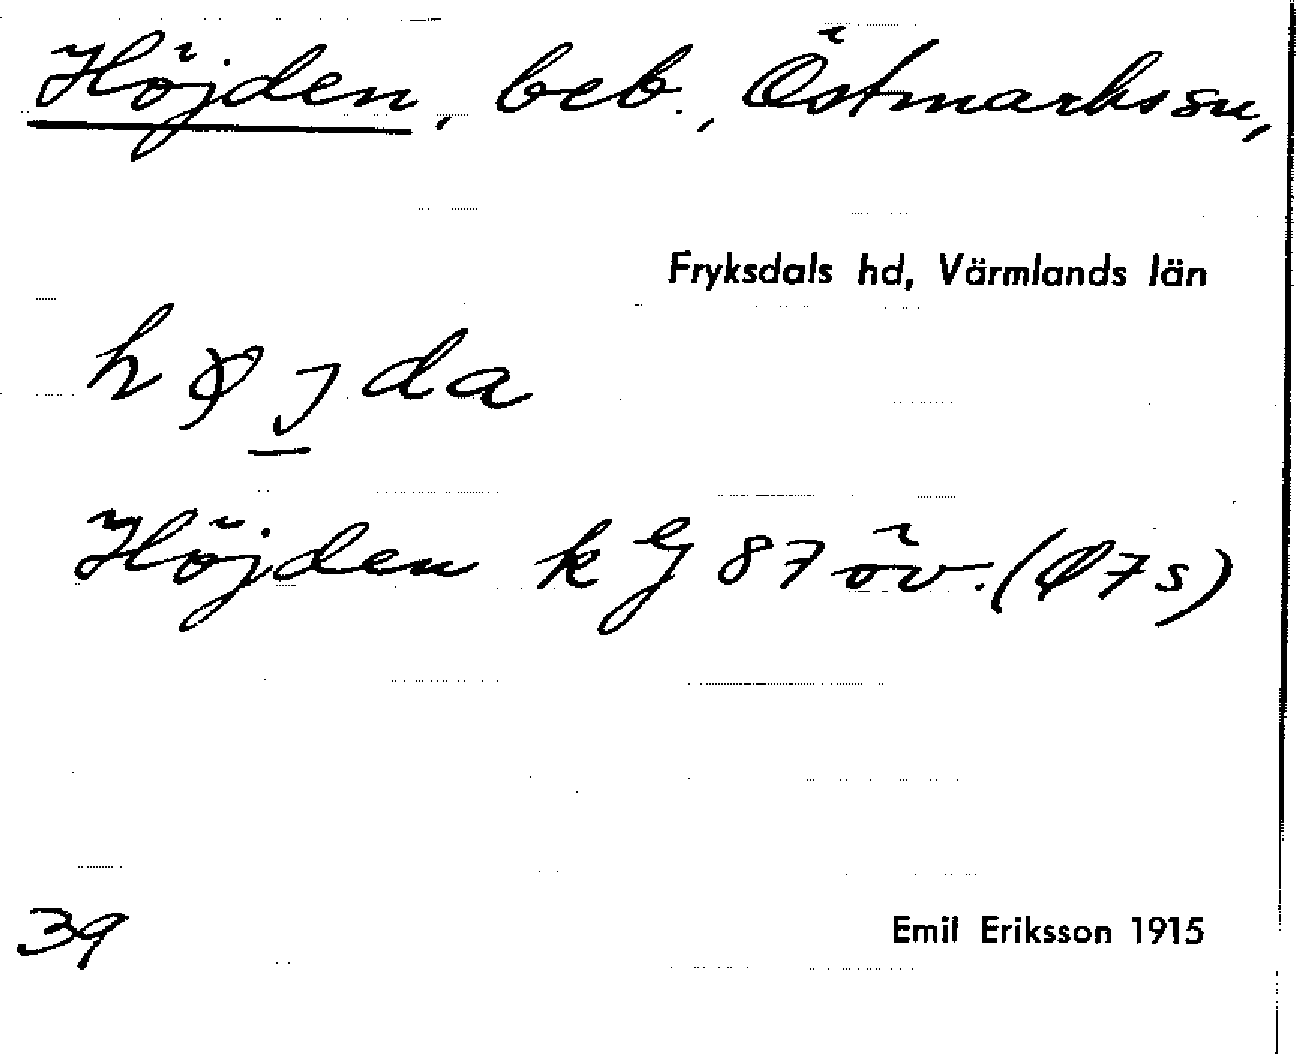 Höjden, beb., Östmarks sn,
Fryksdals hd, Värmlands län
höjda
Höjden k EJ 87 öv. (Ø 7 s)
39
Emil Eriksson 1915